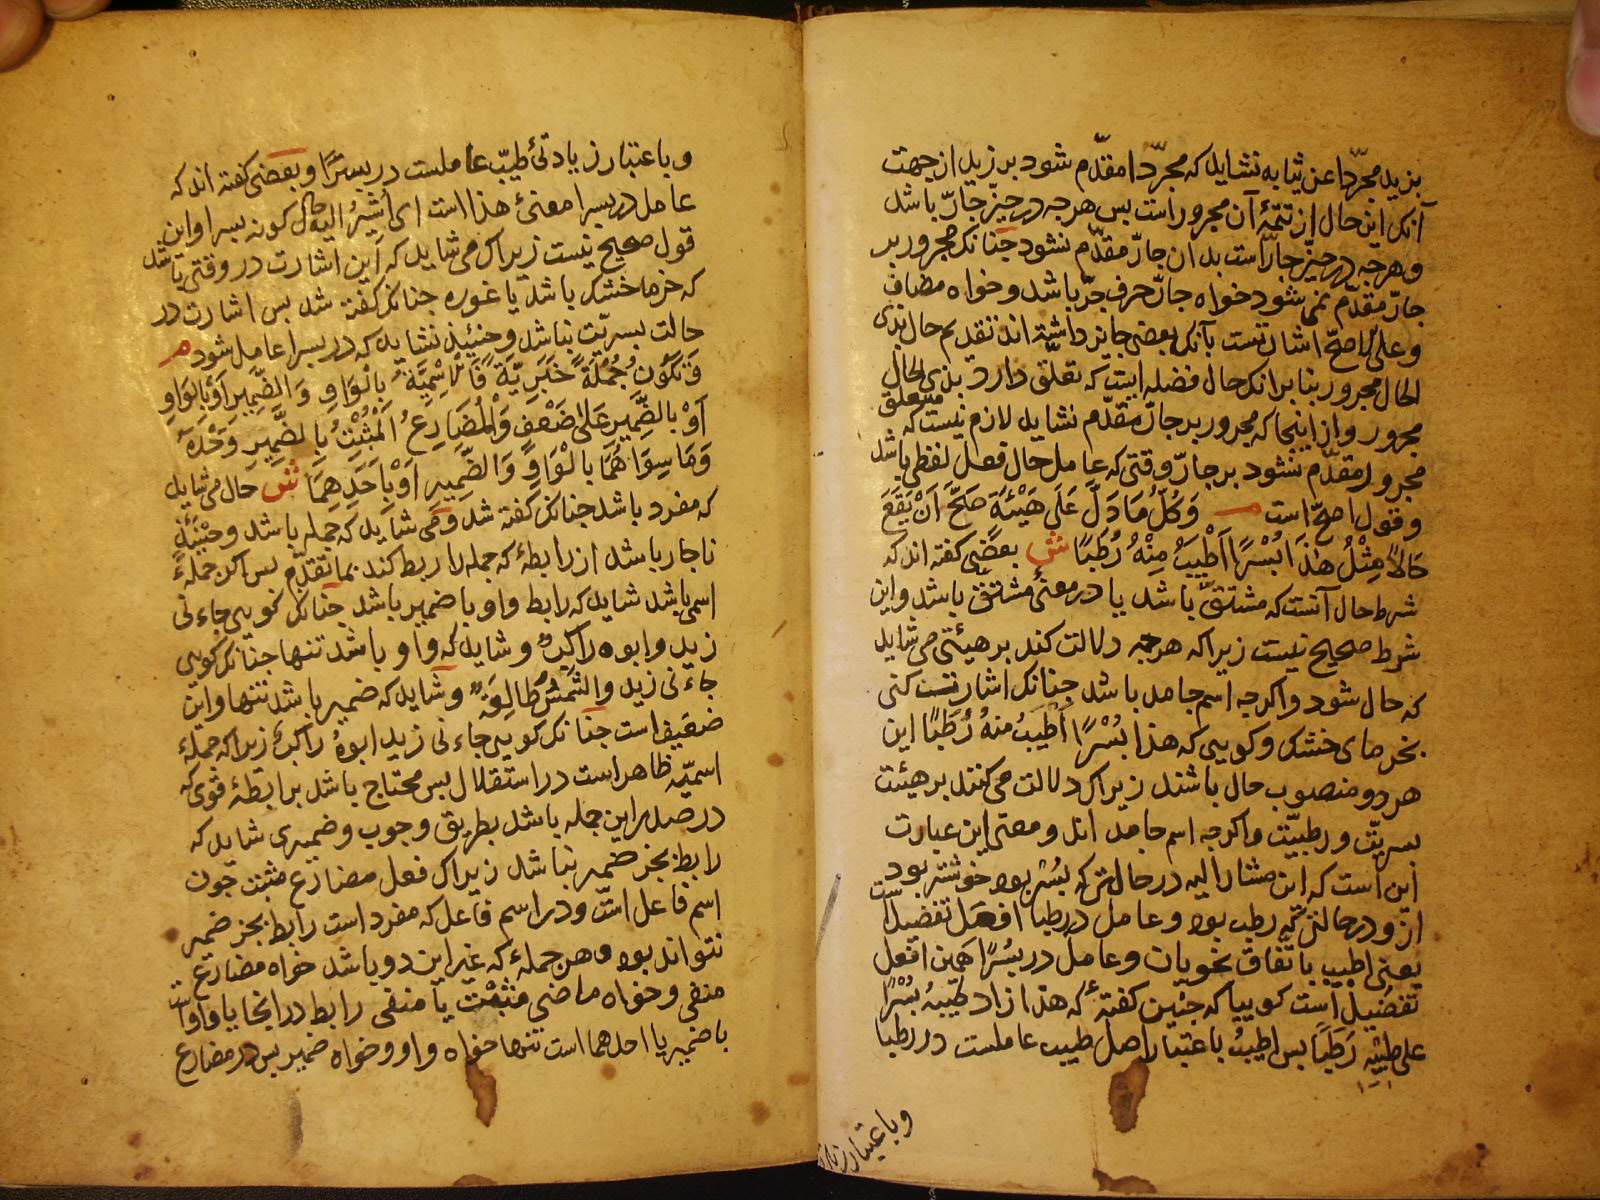 بزید مجرّدا عن ثیابه نشاید که مجرّدا مقدّم شود بر زید از جهت
آنک این حال از تتمّۀ آن مجرور است بس هرجه در حیّز جارّ باشد
و هرجه در حیّز جارّ است بدان جارّ مقدّم نشود جنانک مجرور بر
جارّ مقدّم نمی شود خواه جارّ حرف جرّ باشد و خواه مضاف
و علی الاصحّ اشارتست بآنک بعضی جایز داشته اند تقدیم حال بر ذی
الحال مجرور بنا بر انک حال فضله ایست که تعلّق دارد بذی الحال
مجرور و از اینجا که مجرور بر جارّ مقدّم نشاید لازم نیست که متعلّق
مجرور مقدّم نشود بر جارّ وقتی که عامل حال فعل لفظی باشد
و قول اصحّ است م وَكُلُّ مَا دَلَّ عَلَى هَيْئَةٍ صَحَّ اَنْ يَقَعَ
حَالاً مِثْلُ هٰذَا بُسْرًا اَطْيَبُ مِنْهُ رُطَبًا ش بعضی کفته اند که
شرط حال آنست که مشتقّ باشد یا در معنیٔ مشتقّ باشد و این
شرط صحیح نیست زیرا که هرجه دلالت کند بر هیئتی می شاید
که حال شود و اکرجه اسم جامد باشد جنانک اشارتست کنی
بخرمای خشک و کویی که هذا بُسْرًا اَطیبُ منهُ رُطَبًا این
هر دو منصوب حال باشند زیراک دلالت می کنند بر هیئت
بسریّت و رطبیّت و اکرجه اسم جامد اند و معنی این عبارت
این است که این مشارالیه در حالتی که بُسْر بود خوشتر بود
ازو در حالتی که رطب بود و عامل در رطبا افعل تفضیلست
یعنی اطیب باتّفاق نحویان و عامل در بسُرًا همین افعل
تفضیل است کوییا که جنین کفتهٔ که هذا زاد طیبهُ بُسْرًا
علی طیبه رُطَبًا بس اطیبُ باعتبار اصل طیب عاملست در رطبا
و باعتبار زیادتی
و باعتبار زیادتئ طیبّ عاملست در بسرًا و بعضی کفته اند که
عامل در بسرا معنیٔ هذا است ای اُشیرُ الیه حال کونه بسرا و این
قول صحیح نیست زیراک می شاید که این اشارت در وقتی باشد
که خرما خشک باشد یا غوره جنانک کفته شد بس اشارت در
حالت بسریّت نباشد و حینئذ نشاید که در بسرا عامل شود م
وَتَكُونُ جُمْلَةً خَبَرِيَّةً فَالْاِسْمِيَّةُ بِالْوَاوِ وَالضَّمِيرِ اَوْ بِالْوَاوِ
اَوْ بِالضَّمِيرِ عَلَى ضَعْفٍ وَالْمُضَارِعُ الْمُثْبَتُ بِالضَّمِيرِ وَحْدَهُ
وَمَا سِوَاهُمَا بِالْوَاوِ وَالضَّمِيرِ اَوْ بِاَحَدِهِمَا ش حال می شاید
که مفرد باشد جنانک کفته شد و می شاید که جمله باشد و حینئذ
ناجار باشد از رابطۀ که جمله را ربط کند بما تقدّم بس اکر جملۀ
اسمی باشد شاید که رابط واو با ضمیر باشد جنانک کویی جاءنی
زید و ابوه راکبٌ و شاید که واو باشد تنها جنانک کویی
جاءنی زید والشّمسُ طالِعَةٌ و شاید که ضمیر باشد تنها و این
ضعیف است جنانک کویی جاءنی زید ابوهُ راکبٌ زیرا که جملۀ
اسمیّه ظاهر است در استقلال بس محتاج باشد برابطۀ قوی که
در صدر این جمله باشد بطریق وجوب و ضمیری شاید که
رابط بجز ضمیر نباشد زیراک فعل مضارع مثبت جون
اسم فاعل است و در اسم فاعل که مفرد است رابط بجز ضمیر
نتواند بود و هر جملۀ که غیر این دو باشد خواه مضارع
منفی و خواه ماضی مثبت یا منفی رابط در انجا یا واو است
با ضمیر یا احدهما است تنها خواه واو و خواه ضمیر بس در مضارع